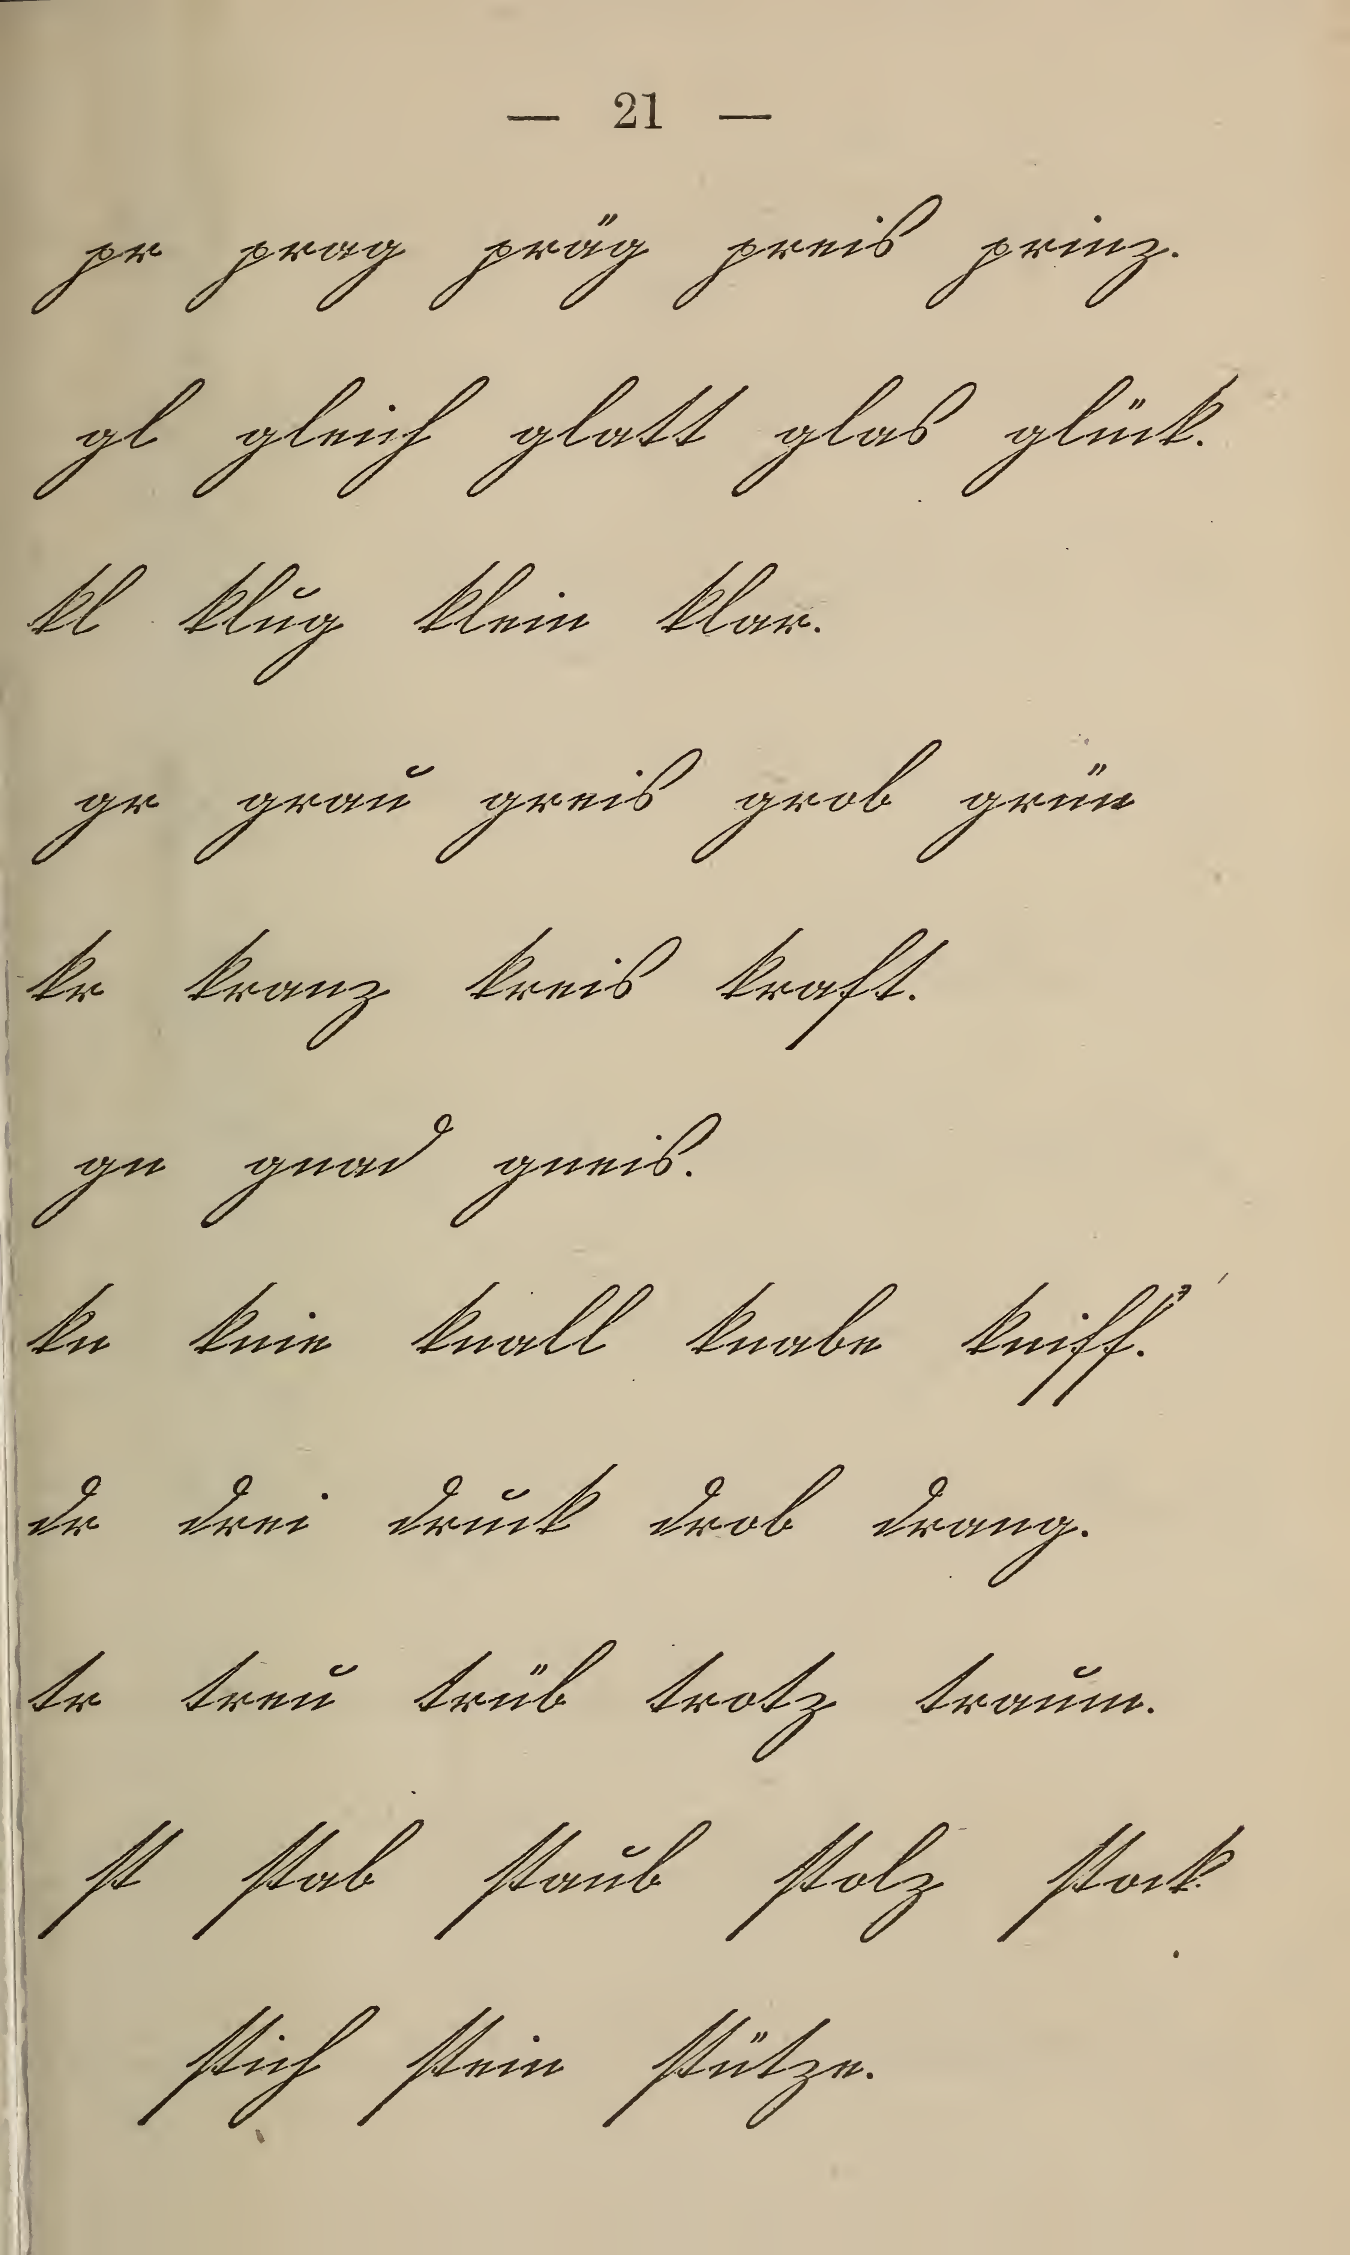 — 21 —
pr prag präg preis prinz.
gl gleich glatt glas glück.
kl klug klein klar.
gr grau greis grob grün
kr kranz kreis kraft.
gn gnad gneis.
kn knie knall knabe kniff.
dr drei druck drob drang.
tr treu trüb trotz traum.
st stab staub stolz stock
stich stein stütze.